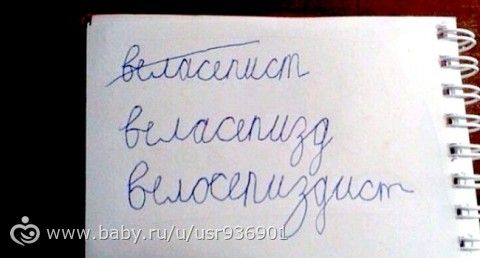 веласепист
веласепизд
велосепиздист
www.baby.ru/u/usr936901